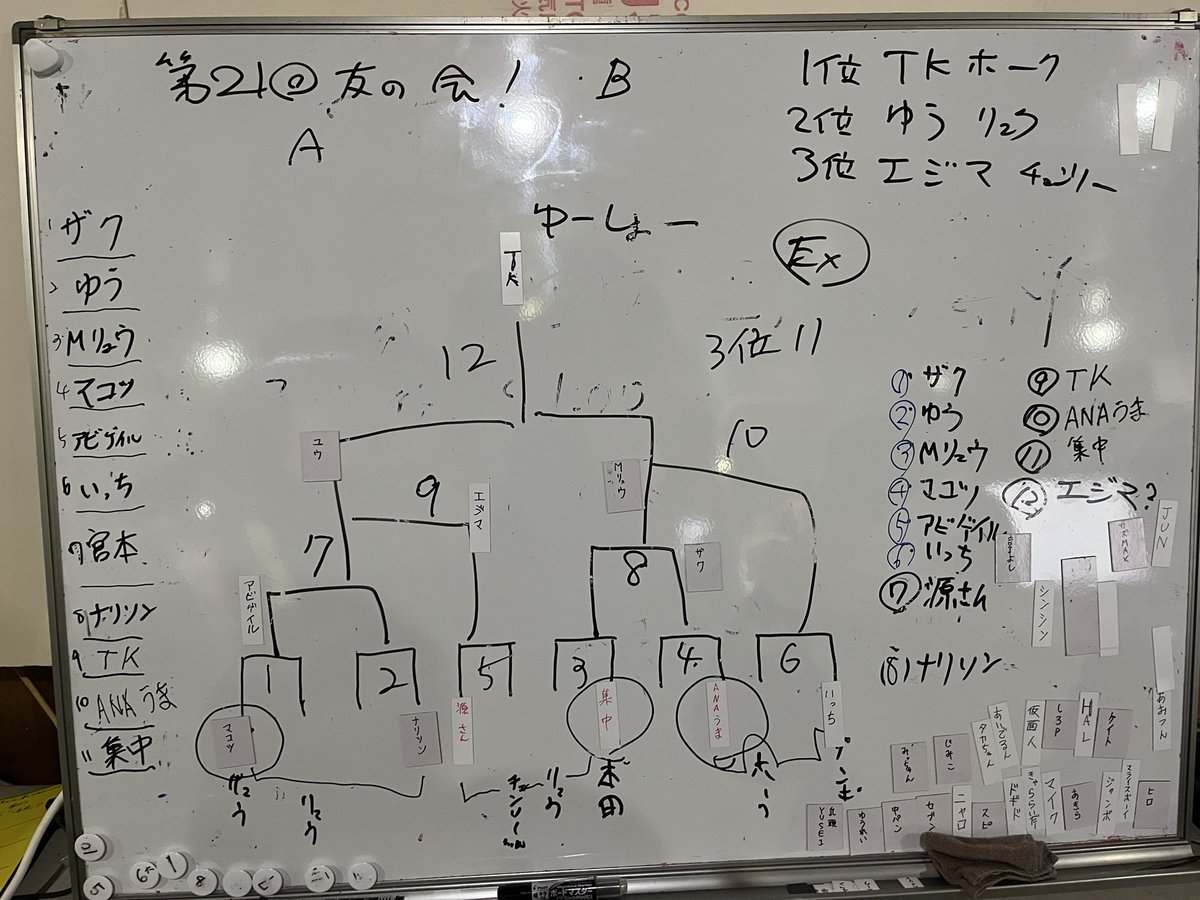 第21回 友の会! ・B
A
1位 TK ホーク
2位 ゆう リュウ
3位 エジマ チュンリー
ゆーしょー
Ex
TK
12
3位 11
1 ザク
2 ゆう
3 Mリュウ
4 マコツ
5 アビゲイル
6 いっち
7 宮本
8) ナリソン
9 TK
10 ANAうま
11 集中
ユウ
9
エジマ
Mリュウ
10
7
8
ザク
アビゲイル
1
2
5
3
4
6
マコツ
ナリソン
源さん
集中
ANAうま
いっち
リュウ
リュウ
チュンリー
リュウ
本田
ホーク
① ザク
② ゆう
③ Mリュウ
④ マコツ
⑤ アビゲイル
⑥ いっち
⑦ 源さん
(8) ナリソン
⑨ TK
⑩ ANAうま
⑪ 集中
⑫ エジマ?
JUN
ガズMAX
シンシン
あおつん
HAL
ケイト
しろP
仮面人
あいでるん
タケちゃん
じみこ
みっちゃん
ヒロ
スライスボーイ
ジャンボ
あきら
マイク
ドギド
スピ
ニャロ
セブン
中ペン
ゆうれい
YUSEI
ボードマスター